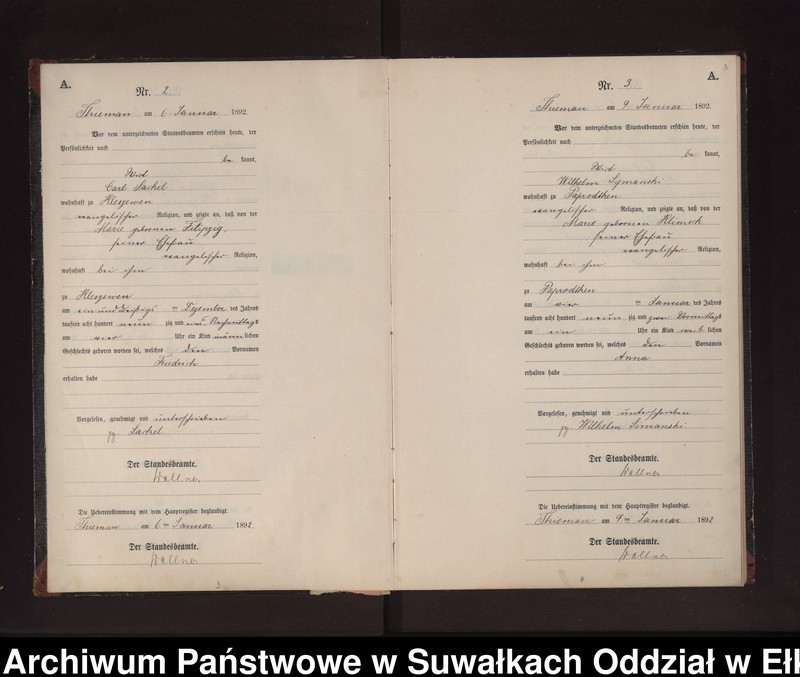 A.
Nr. 2.
Thieman am 6. Januar 1892.
Vor dem unterzeichneten Standesbeamten erschien heute, der
Persönlichkeit nach
be kannt,
Wirt
Carl
wohnhaft zu Kleszewen
evangelischer Religion, und zeigte an, daß von der
Marie geborenen
seiner Ehefrau
evangelischer Religion,
wohnhaft bei ihm
zu Kleszewen
am ein und dreißigs ten Dezember des Jahres
tausend acht hundert neun zig und Nachmittags
um vier Uhr ein Kind männ lichen
Geschlechts geboren worden sei, welches den Vornamen
Friedrich
erhalten habe
Vorgelesen, genehmigt und unterschrieben
gz.
Der Standesbeamte.
Wallner
Die Uebereinstimmung mit dem Hauptregister beglaubigt.
Thieman am 6ten Januar 1892.
Der Standesbeamte.
Wallner
3
3
A.
Nr. 3.
Thieman am 9. Januar 1892.
Vor dem unterzeichneten Standesbeamten erschien heute, der
Persönlichkeit nach
be kannt,
Wirt
Wilhelm Symanski
wohnhaft zu Paprodtken
evangelischer Religion, und zeigte an, daß von der
Marie geborenen Klimek
seiner Ehefrau
evangelischer Religion,
wohnhaft bei ihm
zu Paprodtken
am vier ten Januar des Jahres
tausend acht hundert neun zig und zwei Vormittags
um ein Uhr ein Kind weib lichen
Geschlechts geboren worden sei, welches den Vornamen
Anna
erhalten habe
Vorgelesen, genehmigt und unterschrieben
gz. Wilhelm Simanski
Der Standesbeamte.
Wallner
Die Uebereinstimmung mit dem Hauptregister beglaubigt.
Thieman am 9ten Januar 1892
Der Standesbeamte.
Wallner
4
Archiwum Państwowe w Suwałkach Oddział w Ełk